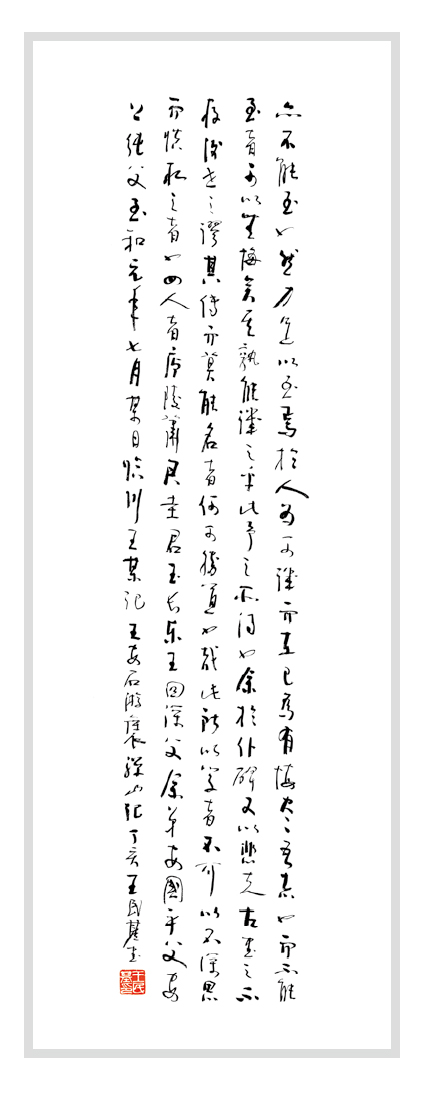 亦不能至也然力足以至焉於人為可譏而在己為有悔尽吾志也而不能
至者可以無悔矣其孰能譏之乎此予之所得也余於仆碑又以悲夫古書之不
存後世之謬其傳而莫能名者何可勝道也哉此所以學者不可以不深思
而慎取之者也四人者廬陵蕭君圭君玉長樂王回深父余弟安國平父安
上純父至和元年七月某日臨川王某記 王安石游褒禪山記 丁亥王民基書
王民基印